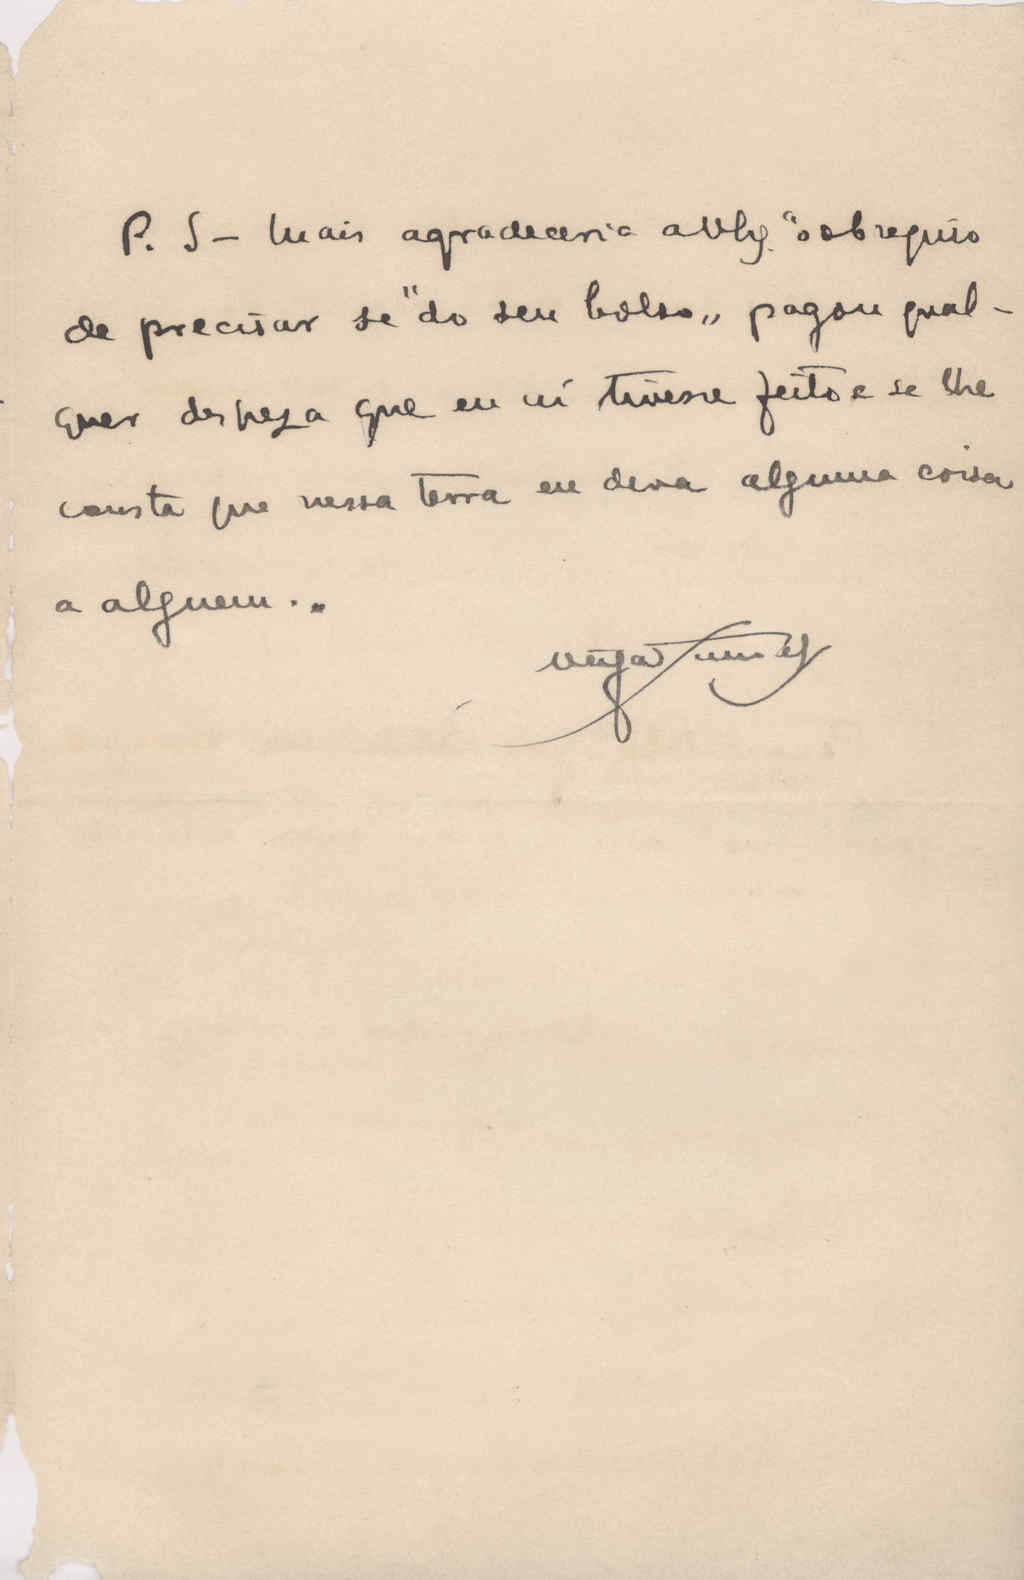 P. S – Mais agradeceria a V. Ex.ª o obrequio
de precisar se "do seu bolso„ pagou qual-
quer despeza que eu ai tivesse feito e se lhe
consta que nessa terra eu deva alguma coisa
a alguem...
Veiga Simões